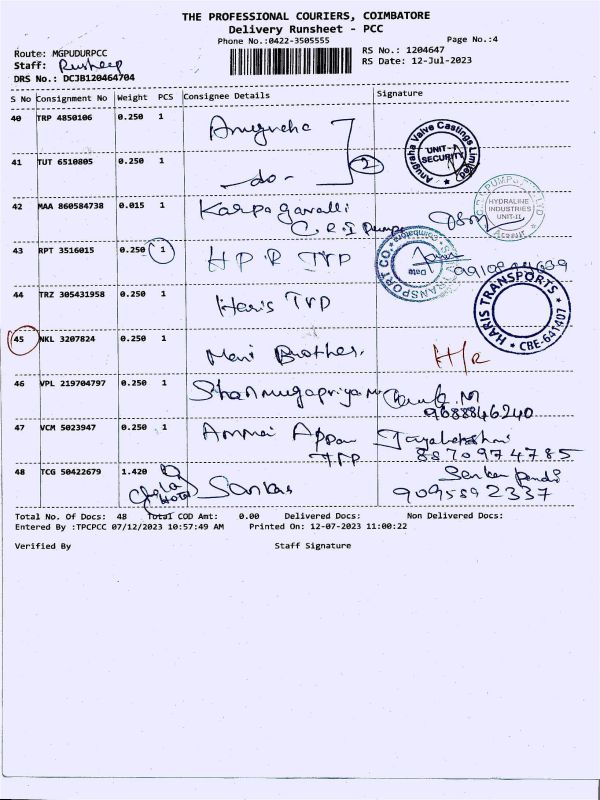 THE PROFESSIONAL COURIERS, COIMBATORE
Delivery Runsheet - PCC
Phone No.:0422-3505555
Page No.:4
Route: MGPUDURPCC
RS No.: 1204647
Staff:
RS Date: 12-Jul-2023
DRS No.: DCJB120464704
S No Consignment No Weight PCS Consignee Details Signature
40 TRP 4850106 0.250 1 Anugraha
Anugraha Valve Castings Limited
UNIT-
SECURITY
2
41 TUT 6510805 0.250 1 -do-
42 MAA 860584738 0.015 1 Karpagavalli
C.R.I Pumps
HYDRALINE
INDUSTRIES
UNIT-II
43 RPT 3516015 0.250 1 H P R TVP
TRANSPORT CO.
Coimbatore
Date
44 TRZ 305431958 0.250 1 Haris TVP
HARIS TRANSPORTS
CBE-641407
45 NKL 3207824 0.250 1 Mani Brother. H/R
46 VPL 219704797 0.250 1 Shanmugapriya M
9688846240
47 VCM 5023947 0.250 1 Ammai Appan
TVP
8870974785
48 TCG 50422679 1.420 Sankar
Hotel
9095592337
Total No. Of Docs: 48 Total COD Amt: 0.00 Delivered Docs: Non Delivered Docs:
Entered By :TPCPCC 07/12/2023 10:57:49 AM Printed On: 12-07-2023 11:00:22
Verified By Staff Signature